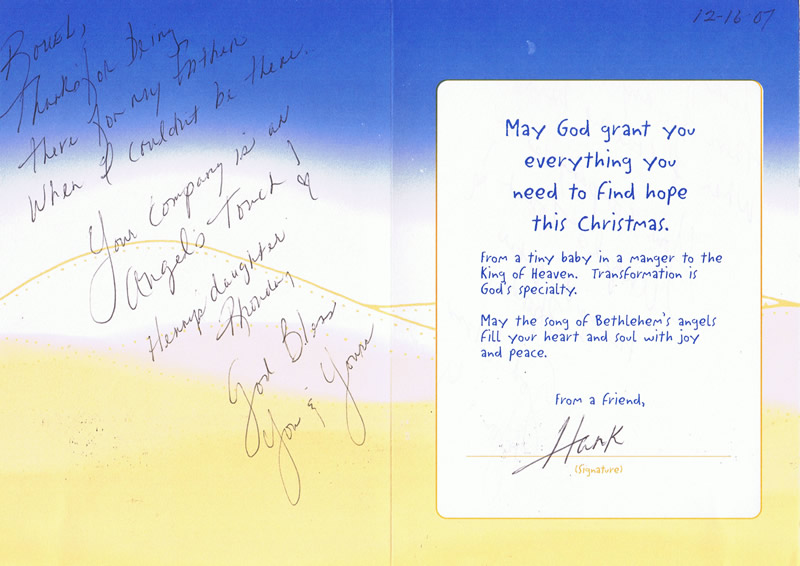 Thanks for being
there for my Father
When I couldnt be there..
Your Company is an
Angel's Touch!
Henry's daughter
Rhonda
God Bless
You & Yours
12-16-07
May God grant you
everything you
need to find hope
this Christmas.
From a tiny baby in a manger to the
King of Heaven. Transformation is
God's specialty.
May the song of Bethlehem's angels
fill your heart and soul with joy
and peace.
From a friend,
Hank
(Signature)